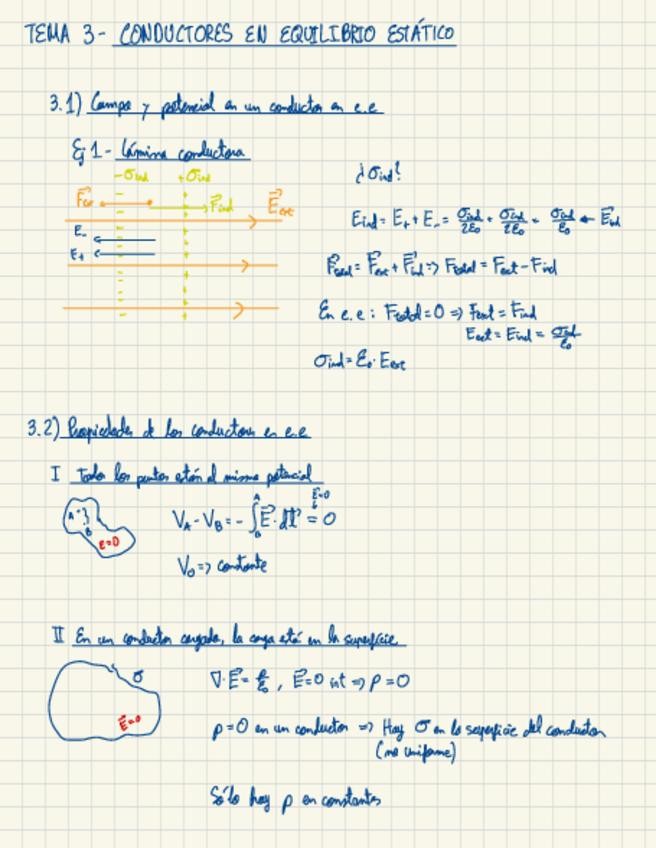 TEMA 3- CONDUCTORES EN EQUILIBRIO ESTÁTICO
3.1) Campo y potencial en un conductor en e.e
Ej 1- Lámina conductora
-σind +σind
F⃗ext F⃗ind E⃗ext
E-
E+
¿σind?
Eind = E+ + E- = σind/2ε0 + σind/2ε0 = σind/ε0 ← E⃗ind
F⃗total = F⃗ext + F⃗ind => Ftotal = Fext - Find
En e.e: Ftotal = 0 => Fext = Find
Eext = Eind = σind/ε0
σind = ε0 · Eext
3.2) Propiedades de los conductores en e.e
I Todos los puntos están al mismo potencial
A
B
E=0
E⃗=0
VA - VB = - ∫_B^A E⃗ · dl⃗ = 0
V0 => constante
II En un conductor cargado, la carga está en la superficie
σ
E⃗=0
∇·E⃗ = ρ/ε0 , E⃗=0 int => ρ=0
ρ=0 en un conductor => Hay σ en la superficie del conductor
(no uniforme)
Sólo hay ρ en constantes